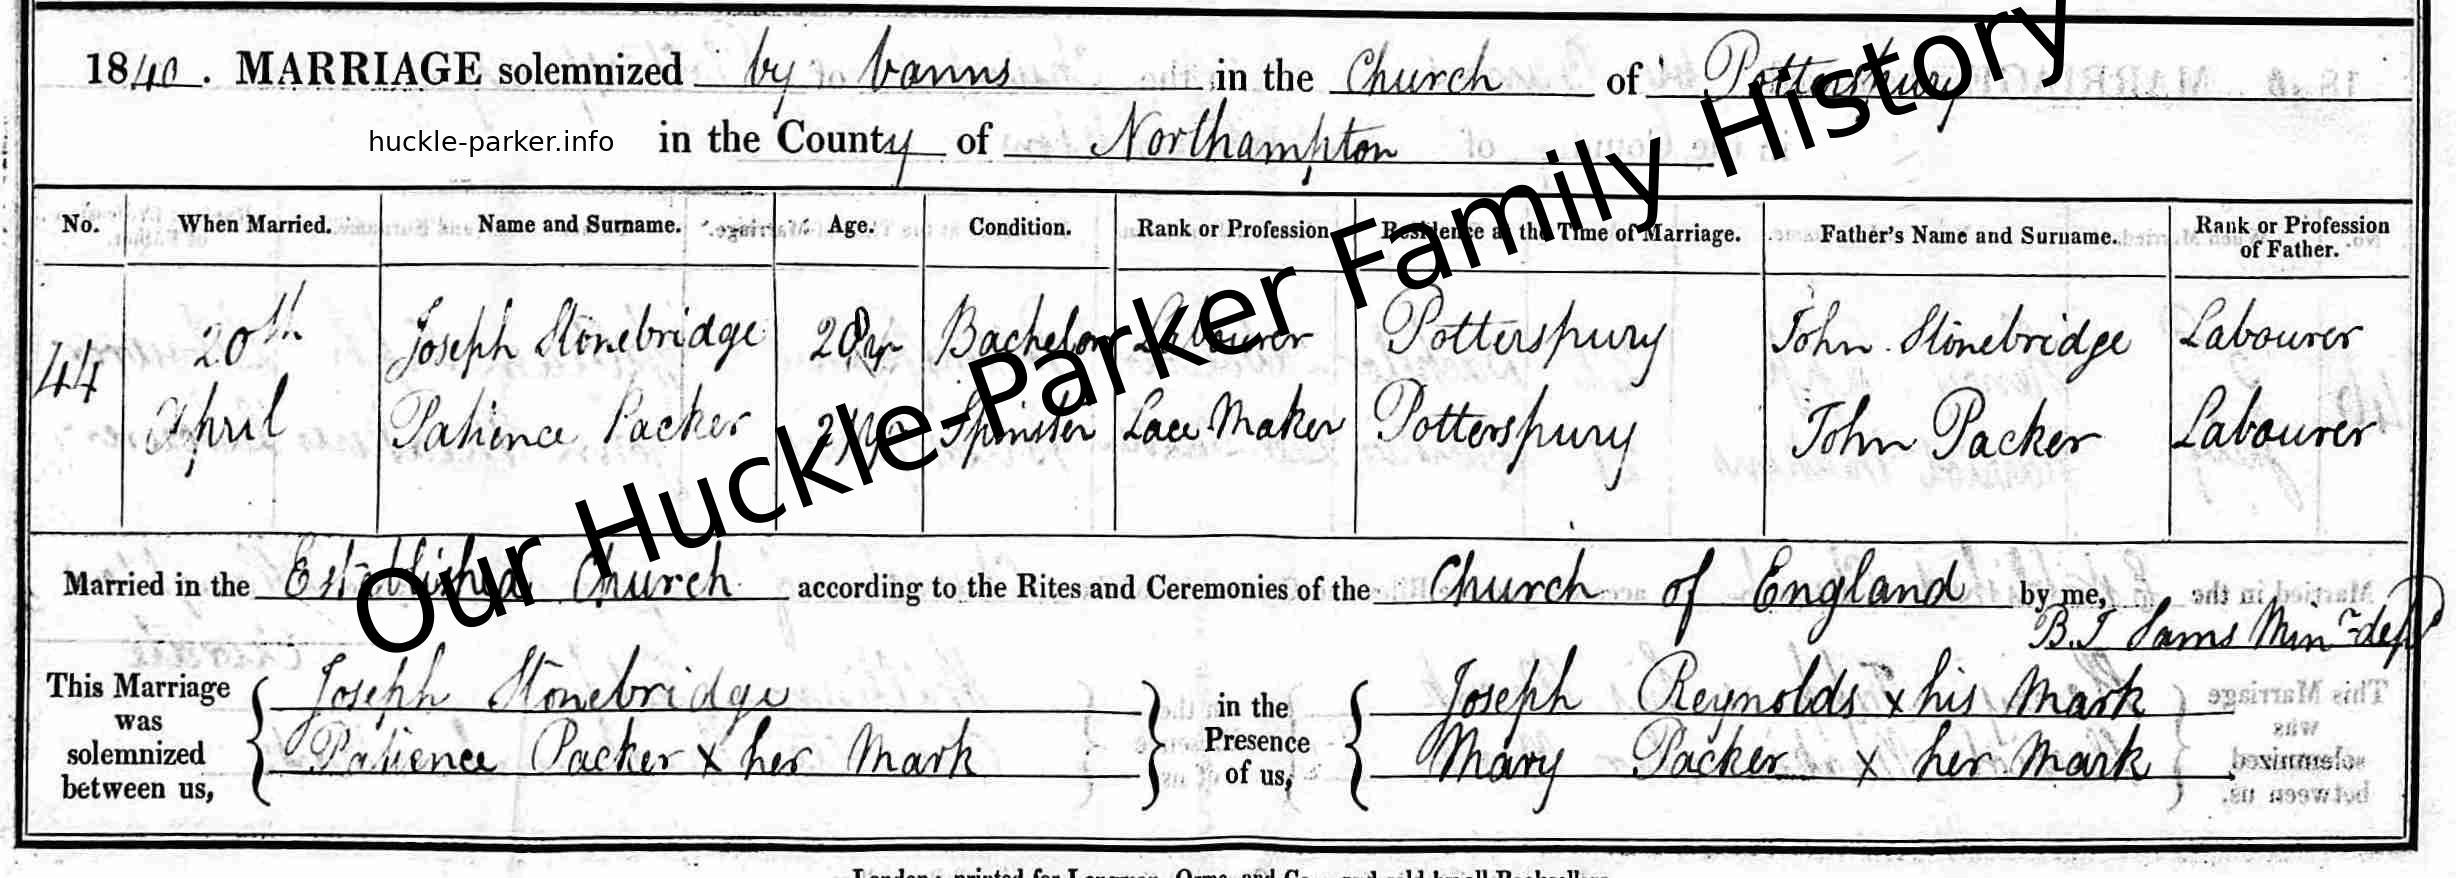 1840. MARRIAGE solemnized by banns in the Church of Potterspury
huckle-parker.info in the County of Northampton
No. When Married. Name and Surname. Age. Condition. Rank or Profession. Residence at the Time of Marriage. Father's Name and Surname. Rank or Profession of Father.
44 20th April
Joseph Stonebridge Bachelor Labourer Potterspury John Stonebridge Labourer
Patience Packer Spinster Lace Maker Potterspury John Packer Labourer
Our Huckle-Parker Family History
Married in the Established Church according to the Rites and Ceremonies of the Church of England by me,
B. J. Sams Minr
This Marriage was solemnized between us,
Joseph Stonebridge
Patience Packer x her Mark
in the Presence of us,
Joseph Reynolds x his Mark
Mary Packer x her Mark